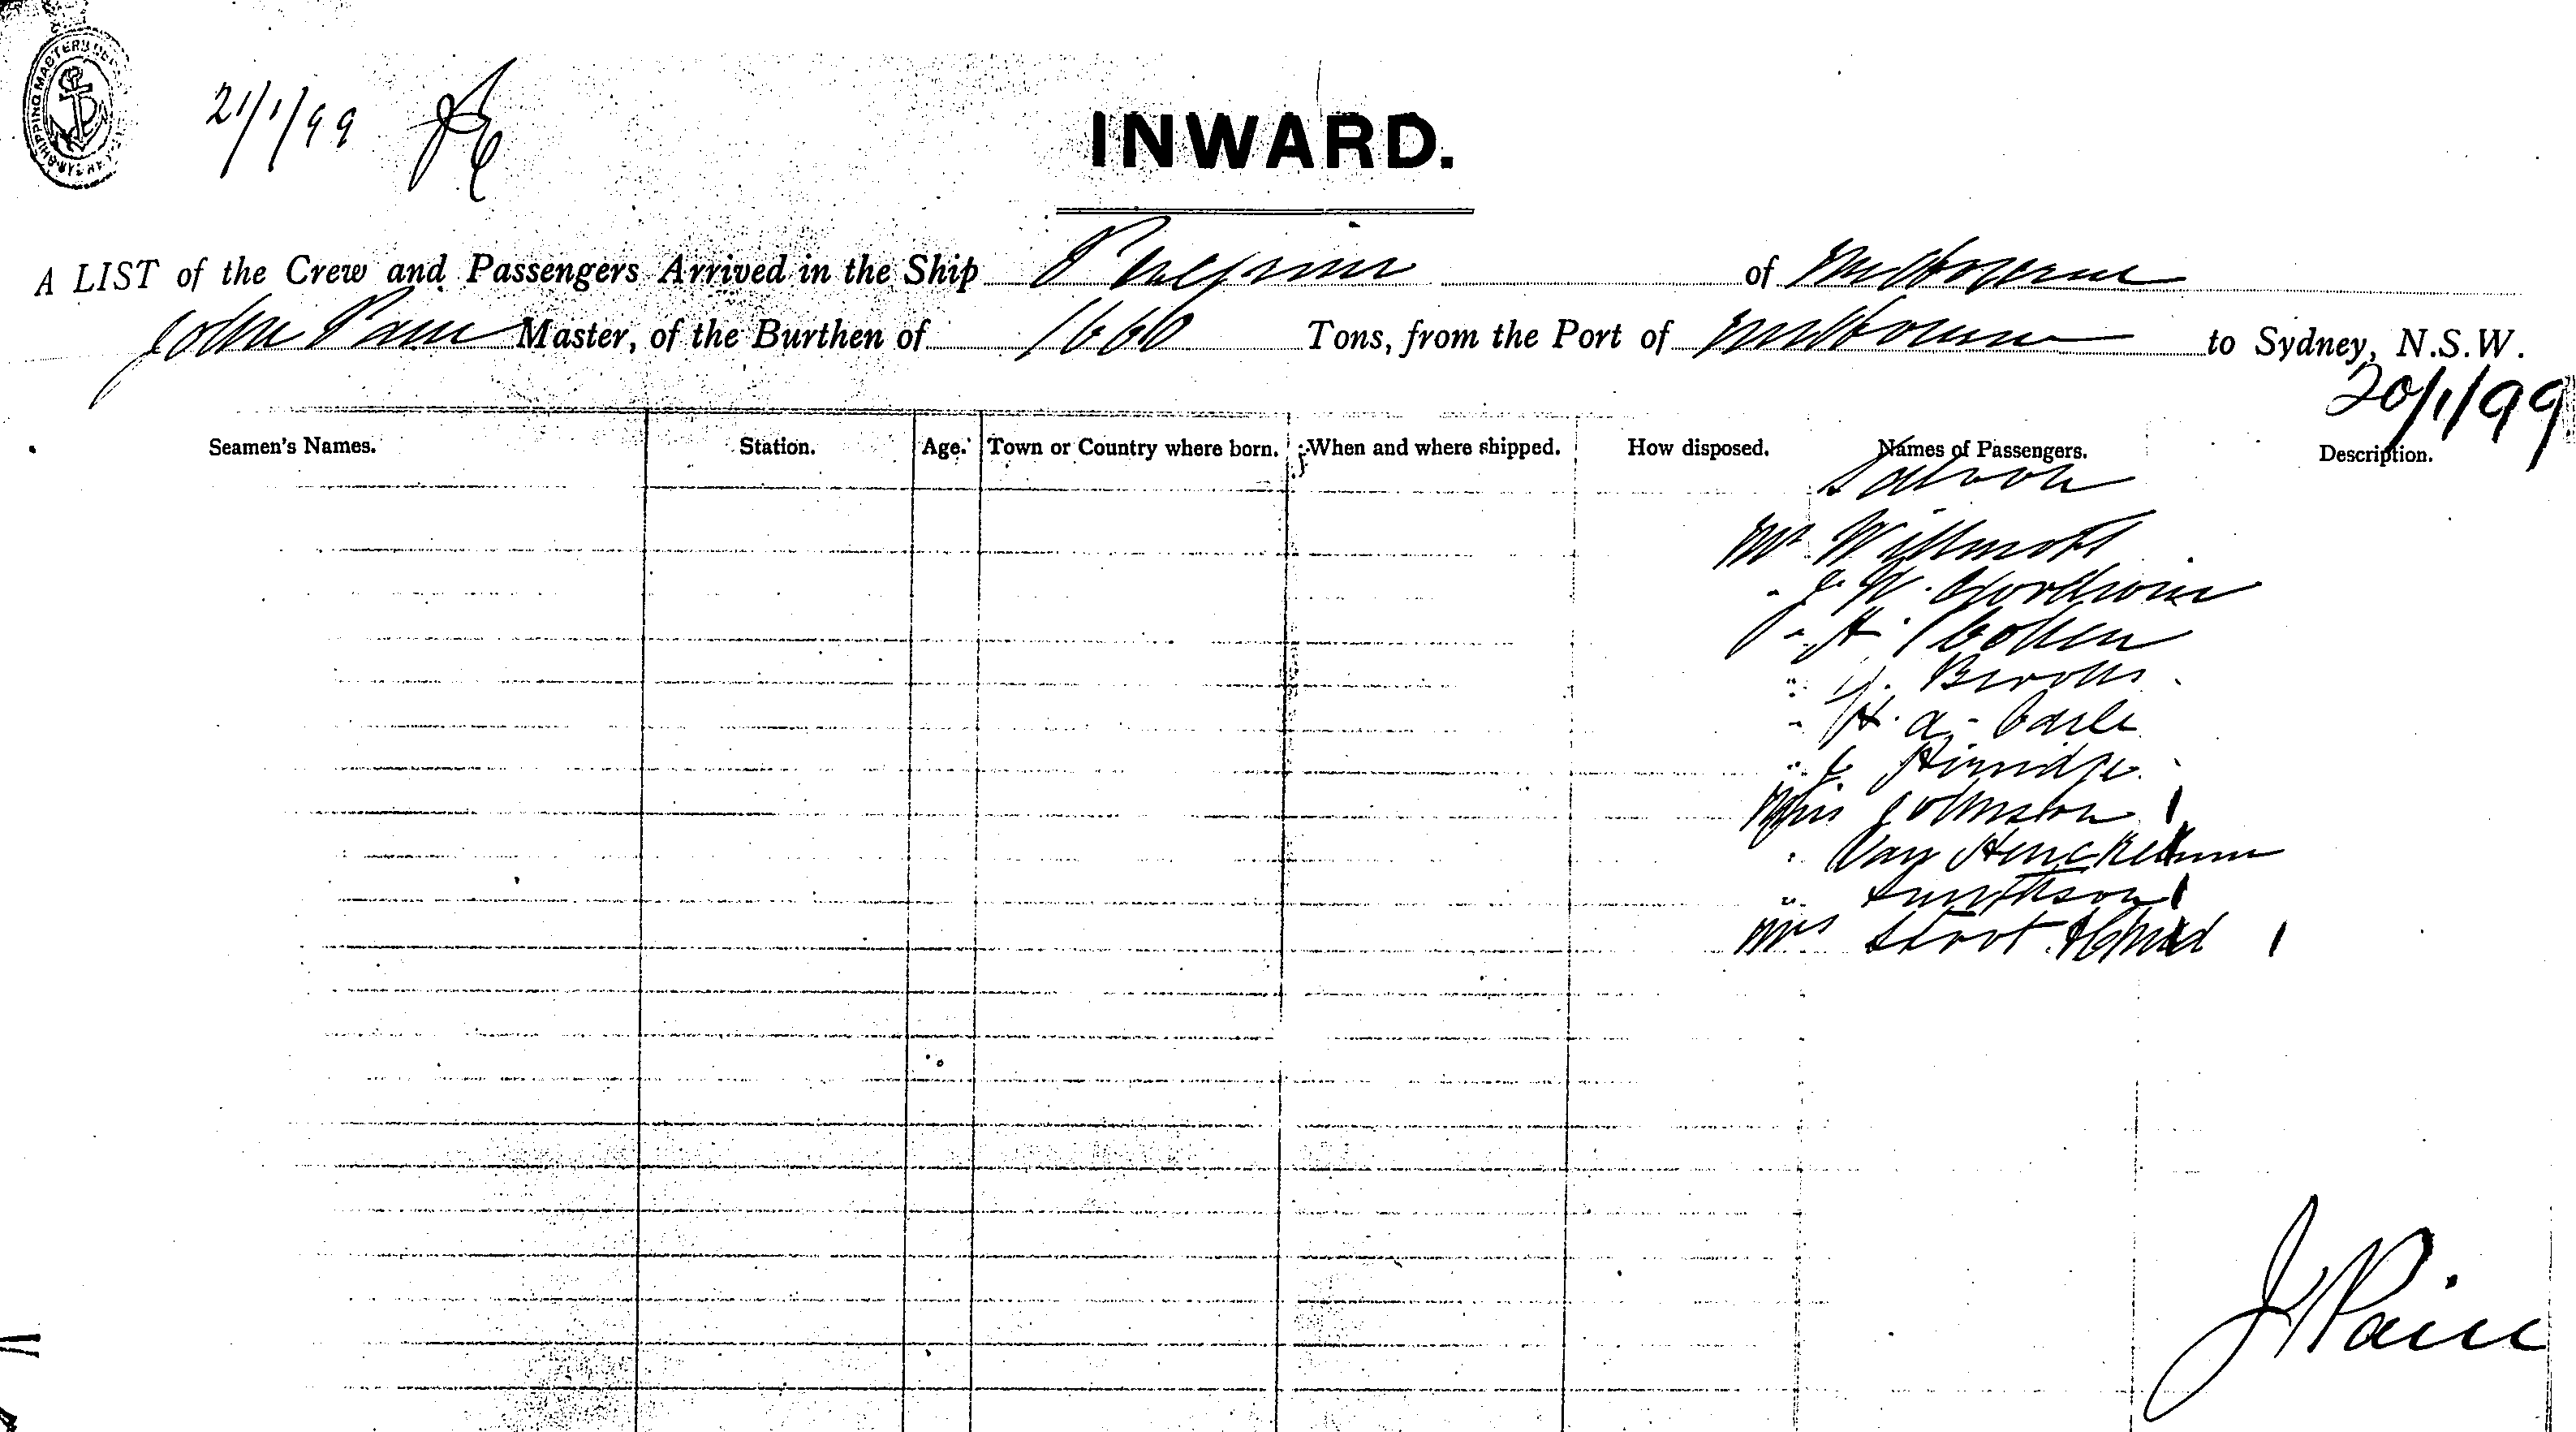 21/1/99
INWARD.
A LIST of the Crew and Passengers Arrived in the Ship Peregrine of Melbourne
John Pain Master, of the Burthen of 1660 Tons, from the Port of Melbourne to Sydney, N.S.W.
20/1/99
Seamen's Names. Station. Age. Town or Country where born. When and where shipped. How disposed. Names of Passengers. Description.
Saloon
Mr Willmott
" J. W.
" A. Cohen
" Brooks
" H. A. Earle
"
Miss Johnston 1
" Van
" Smithson 1
Mrs 1
J Pain